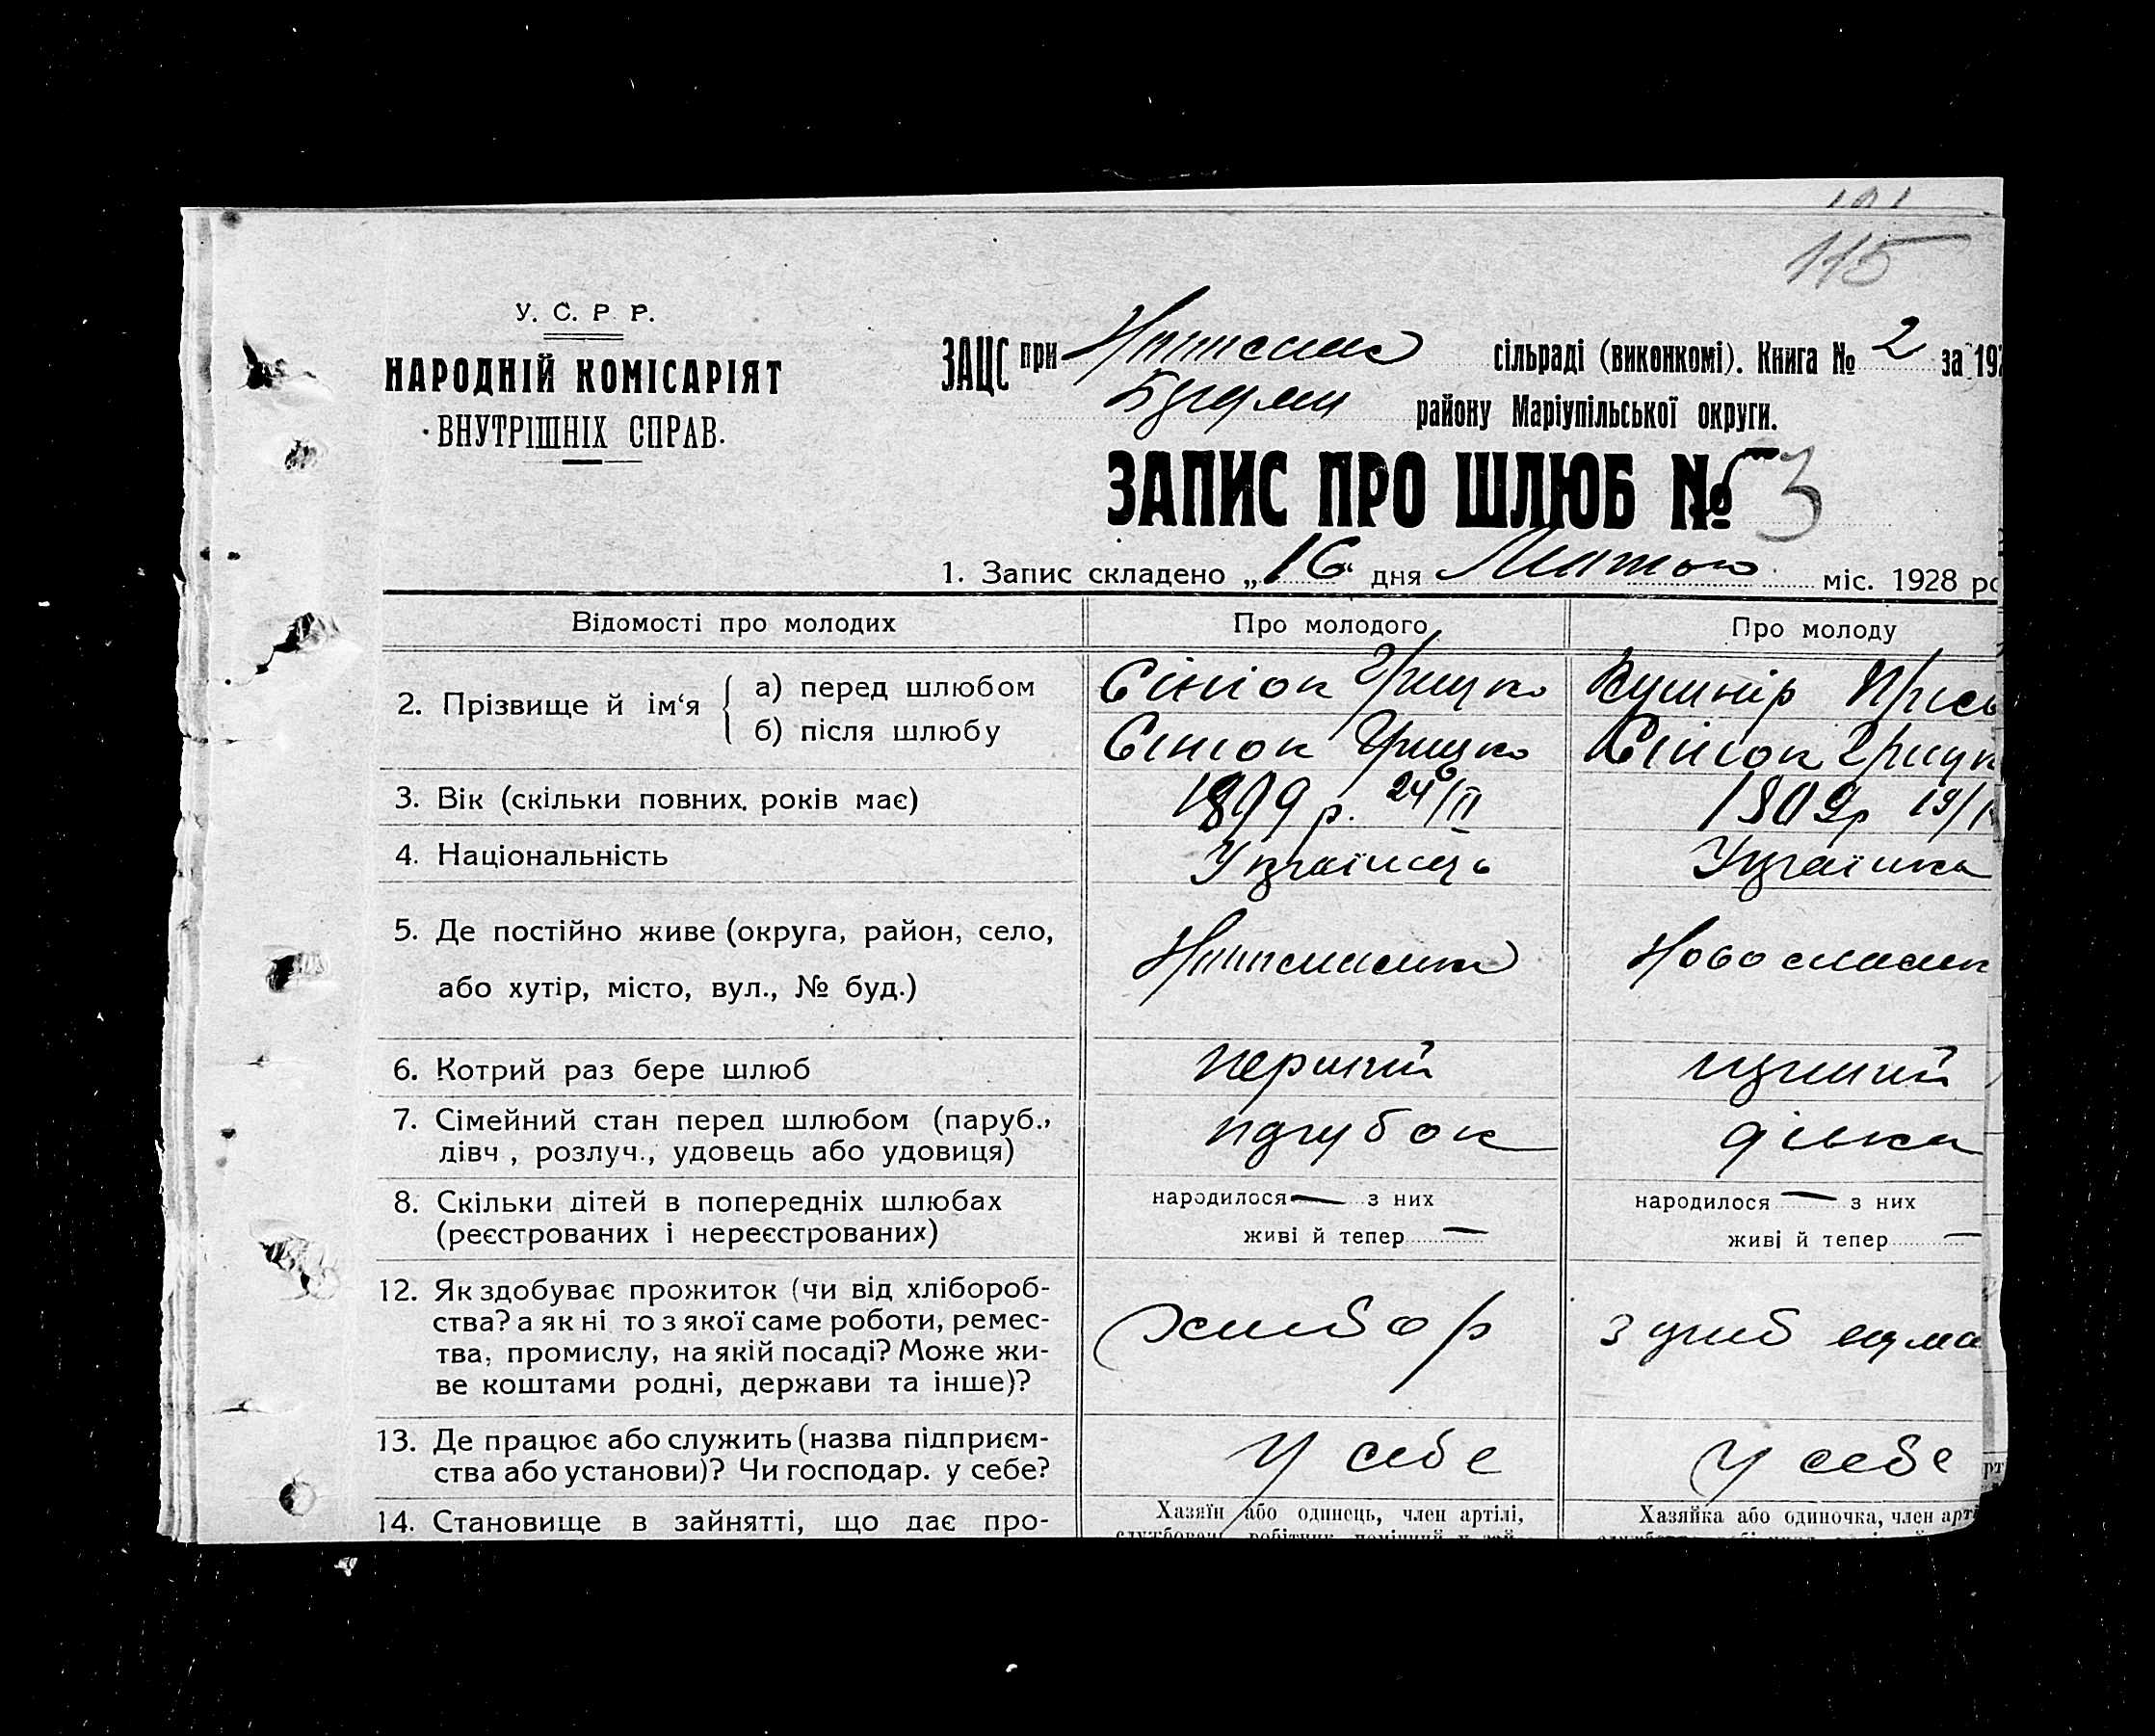 115
У. С. Р. Р.
НАРОДНІЙ КОМІСАРІЯТ
ВНУТРІШНІХ СПРАВ.
ЗАЦС при сільраді (виконкомі). Книга № 2 за 192
району Маріупільської округи.
ЗАПИС ПРО ШЛЮБ № 3
1. Запис складено „16“ дня Лютого міс. 1928 ро
Відомості про молодих Про молодого Про молоду
2. Прізвище й ім‘я
а) перед шлюбом Сініок Грицко Кушнір Прісь
б) після шлюбу Сініок Грицко Сініок Грицк
3. Вік (скільки повних. років має) 1899 р. 24/II 1909р 19/
4. Національність Українець Українка
5. Де постійно живе (округа, район, село, або хутір, місто, вул., № буд.) Новоспаськ
6. Котрий раз бере шлюб перший перший
7. Сімейний стан перед шлюбом (паруб., дівч., розлуч., удовець або удовиця) парубок дівка
8. Скільки дітей в попередніх шлюбах (реєстрованих і нереєстрованих)
народилося — з них народилося — з них
живі й тепер — живі й тепер —
12. Як здобуває прожиток (чи від хлібороб-
ства? а як ні то з якої саме роботи, ремес-
тва, промислу, на якій посаді? Може жи-
ве коштами родні, держави та інше)?
хлибор
13. Де працює або служить (назва підприєм-
ства або установи)? Чи господар. у себе?
у себе у себе
14. Становище в зайнятті, що дає про-
Хазяїн або одинець, член артілі,
Хазяйка або одиночка, член арті